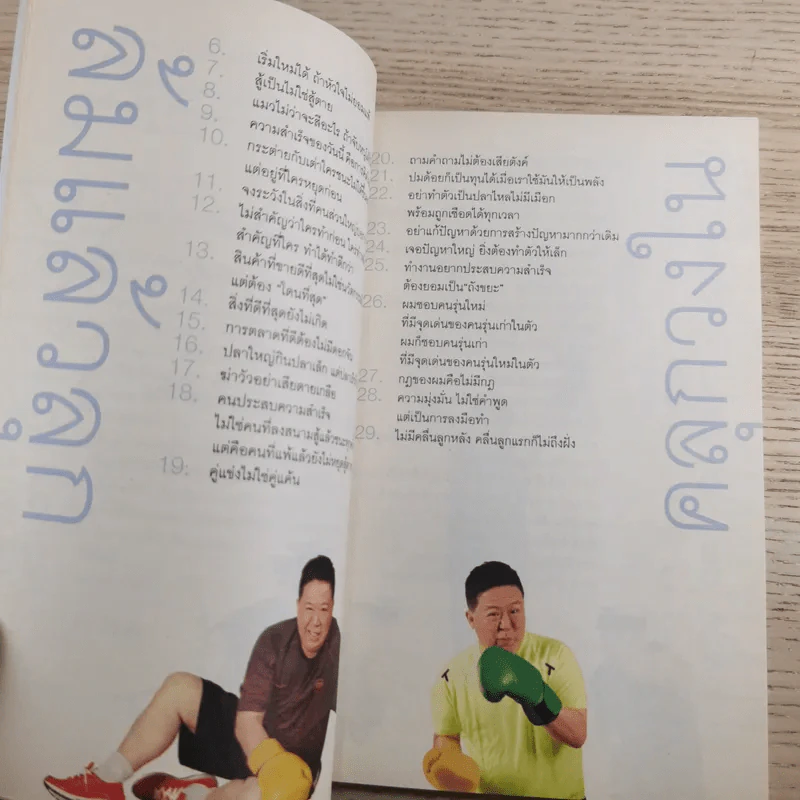 ล้มแล้วลุก
6. เริ่มใหม่ได้ ถ้าหัวใจไม่ยอมแพ้
7. สู้เป็นไม่ใช่สู้ตาย
8. แมวไม่ว่าจะสีอะไร ถ้าจับหนู
9. ความสำเร็จของวันนี้ คือ
10. กระต่ายกับเต่าใครชนะไม่
แต่อยู่ที่ใครหยุดก่อน
11. จงระวังในสิ่งที่คนส่วนใหญ่
12. ไม่สำคัญว่าใครทำก่อน ใคร
สำคัญที่ใคร ทำได้ดีกว่า
13. สินค้าที่ขายดีที่สุดไม่ใช่
แต่ต้อง "โดนที่สุด"
14. สิ่งที่ดีที่สุดยังไม่เกิด
15. การตลาดที่ดีต้องไม่มีดอกจัน
16. ปลาใหญ่กินปลาเล็ก แต่
17. ฆ่าวัวอย่าเสียดายเกลือ
18. คนประสบความสำเร็จ
ไม่ใช่คนที่ลงสนามสู้แล้วชนะ
แต่คือคนที่แพ้แล้วยังไม่หยุดสู้
19. คู่แข่งไม่ใช่คู่แค้น
20. ถามคำถามไม่ต้องเสียตังค์
21. ปมด้อยก็เป็นทุนได้เมื่อเราใช้มันให้เป็นพลัง
22. อย่าทำตัวเป็นปลาไหลไม่มีเมือก
พร้อมถูกเชือดได้ทุกเวลา
23. อย่าแก้ปัญหาด้วยการสร้างปัญหามากกว่าเดิม
24. เจอปัญหาใหญ่ ยิ่งต้องทำตัวให้เล็ก
25. ทำงานอยากประสบความสำเร็จ
ต้องยอมเป็น"ถังขยะ"
26. ผมชอบคนรุ่นใหม่
ที่มีจุดเด่นของคนรุ่นเก่าในตัว
ผมก็ชอบคนรุ่นเก่า
ที่มีจุดเด่นของคนรุ่นใหม่ในตัว
27. กฎของผมคือไม่มีกฎ
28. ความมุ่งมั่น ไม่ใช่คำพูด
แต่เป็นการลงมือทำ
29. ไม่มีคลื่นลูกหลัง คลื่นลูกแรกก็ไม่ถึงฝั่ง